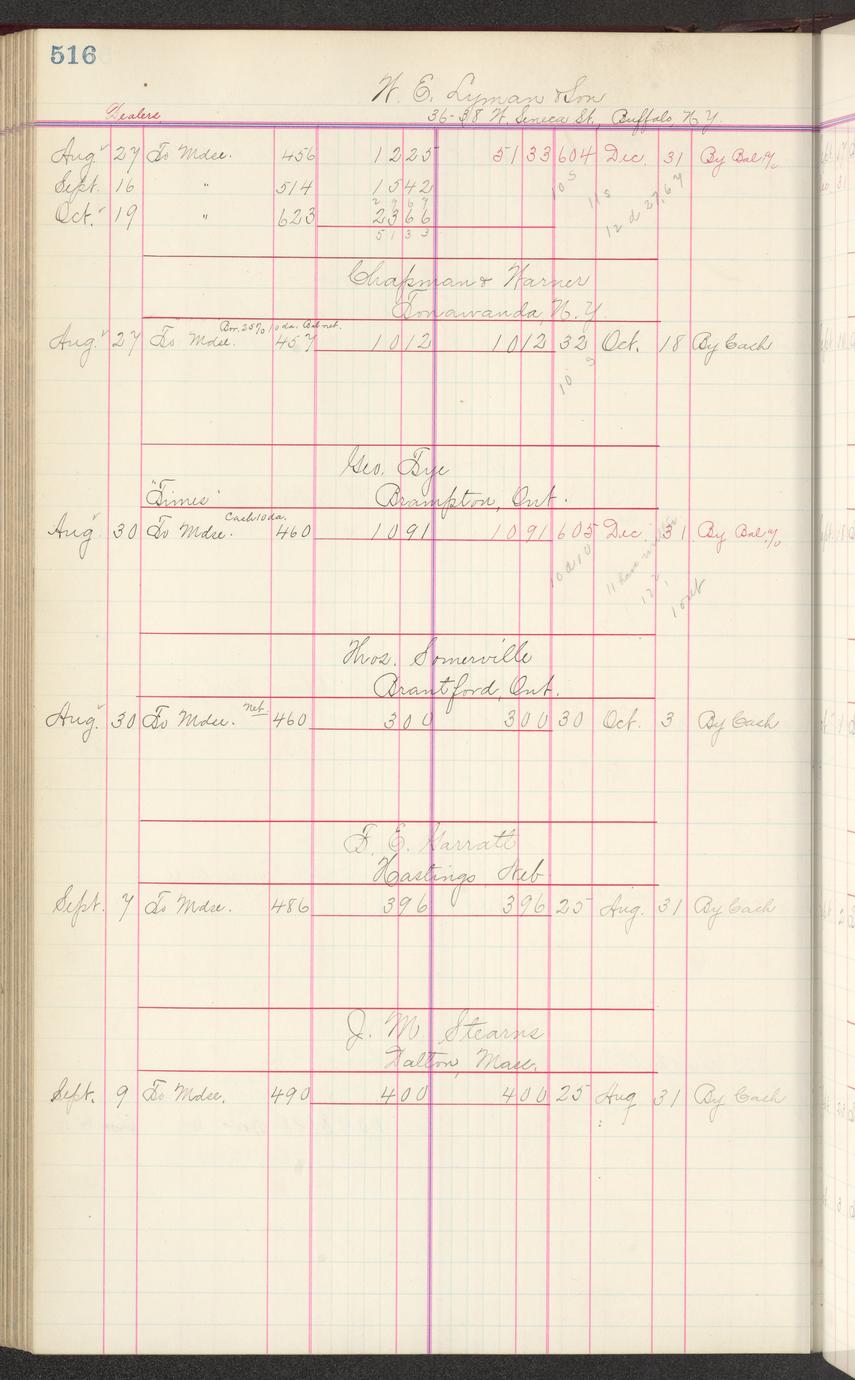 516
W. E. Lyman & Son
Dealers 36-38 W. Seneca St., Buffalo, N.Y.
Aug. 27 To Mdse. 456 1225 5133 604 Dec. 31 By Bal %
Sept. 16 " 514 1542
10 s 11 s 12 d 27.67
2967
Oct. 19 " 623 2366
5133
Chapman & Warner
Tonawanda, N.Y.
Box, 25% 10 da. Bal net.
Aug. 27 To Mdse. 457 1012 1012 32 Oct. 18 By Cash
10 s
Geo. Tye
"Times" Brampton, Ont.
Cash 10 da.
Aug 30 To Mdse. 460 1091 1091 605 Dec. 31 By Bal %
10 d 10
Thos. Somerville
Brantford, Ont.
Aug. 30 To Mdse. Net 460 300 300 30 Oct. 3 By Cash
F. E. Garratt
Hastings, Neb.
Sept. 7 To Mdse. 486 396 396 25 Aug. 31 By Cash
J. M. Stearns
Dalton, Mass.
Sept. 9 To Mdse. 490 400 400 25 Aug 31 By Cash